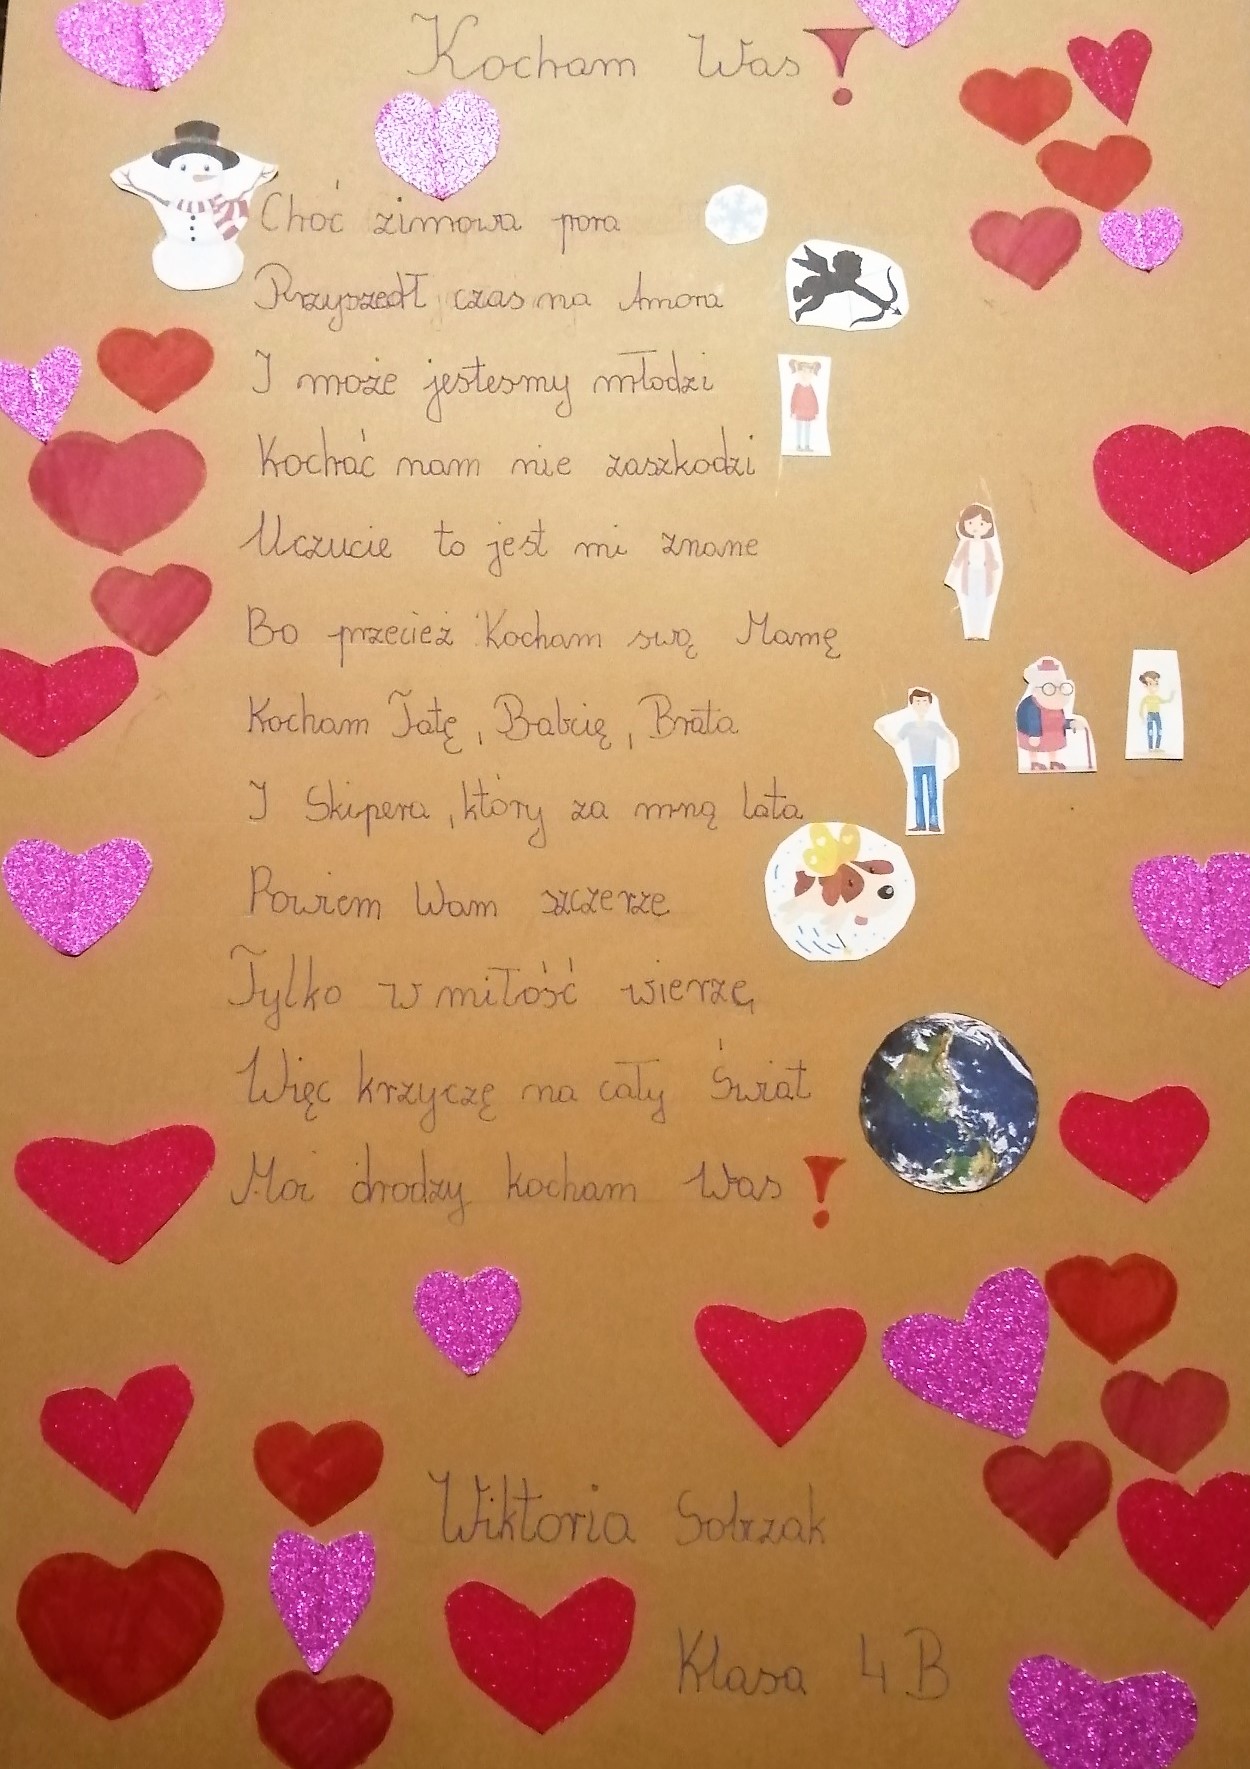 Kocham Was!
Choć zimowa pora
Przyszedł czas na Amora
I może jestesmy młodzi
Kochać nam nie zaszkodzi
Uczucie to jest mi znane
Bo przecież Kocham swą Mamę
Kocham Tatę, Babcię, Brata
I Skipera, który za mną lata
Powiem Wam szczerze
Tylko w miłość wierzę
Więc krzyczę na cały Świat
Moi drodzy kocham Was!
Wiktoria Sobrzak
Klasa 4B